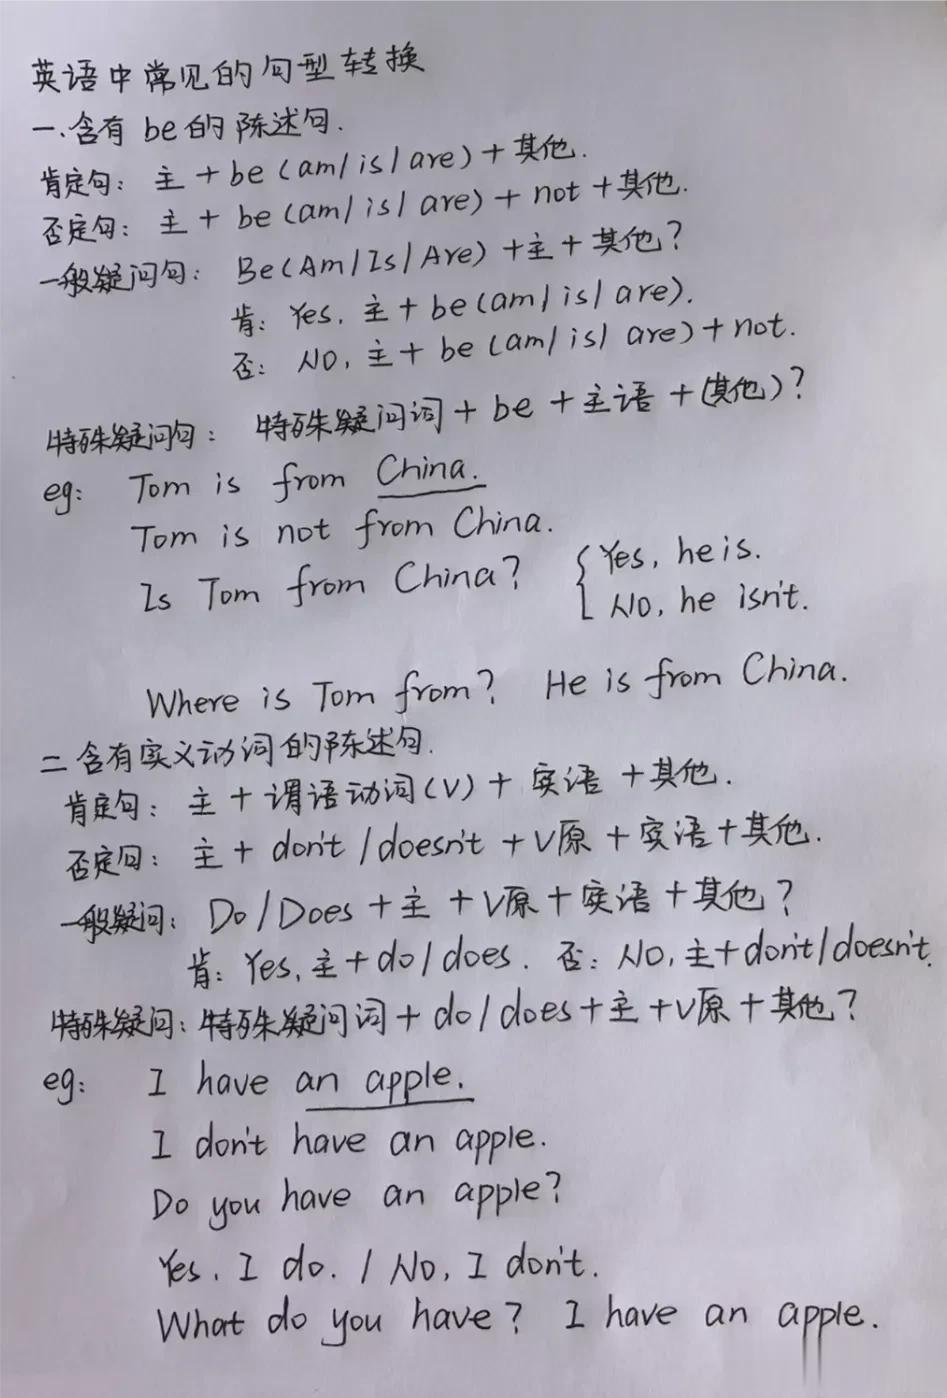 英语中常见的句型转换
一.含有 be的 陈述句.
肯定句: 主 + be (am/is/are) + 其他.
否定句: 主 + be (am/is/are) + not + 其他.
一般疑问句: Be(Am/Is/Are) + 主 + 其他?
肯: Yes, 主 + be (am/is/are).
否: No, 主 + be (am/is/are) + not.
特殊疑问句: 特殊疑问词 + be + 主语 + (其他)?
eg: Tom is from China.
Tom is not from China.
Is Tom from China? { Yes, he is.
No, he isn't.
Where is Tom from? He is from China.
二 含有实义动词的陈述句.
肯定句: 主 + 谓语动词(V) + 宾语 + 其他.
否定句: 主 + don't /doesn't + V原 + 宾语 + 其他.
一般疑问: Do/Does + 主 + V原 + 宾语 + 其他?
肯: Yes, 主 + do/does. 否: No, 主+don't/doesn't.
特殊疑问: 特殊疑问词 + do/does + 主 + V原 + 其他?
eg: I have an apple.
I don't have an apple.
Do you have an apple?
Yes, I do. / No, I don't.
What do you have? I have an apple.